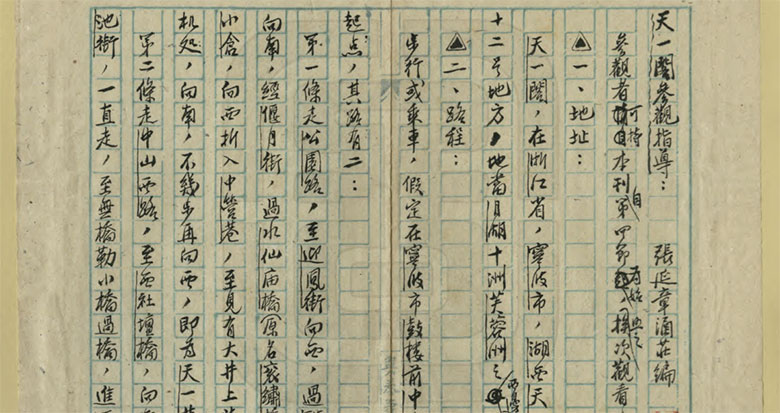 天一閣參觀指導： 張延章酒莊編
參觀者可持本刊自第四節有始與之，揆次觀看
一、地址：
天一閣，在浙江省，寧波市，湖西天
十二号地方，地當月湖十洲芙蓉洲之
二、路程：
步行或乘車，假定在寧波市鼓樓前中
起点，其路有二：
第一條走公園路，至迎鳳街向西，過
向南，經偃月街，過水仙庙橋原名袞繡
小倉，向西折入中營巷，至見有大井上
机处，向南，不幾步再向西，即为天一
第二條走中山西路，至西社壇橋，向
池街，一直走，至無橋勒小橋過橋，進